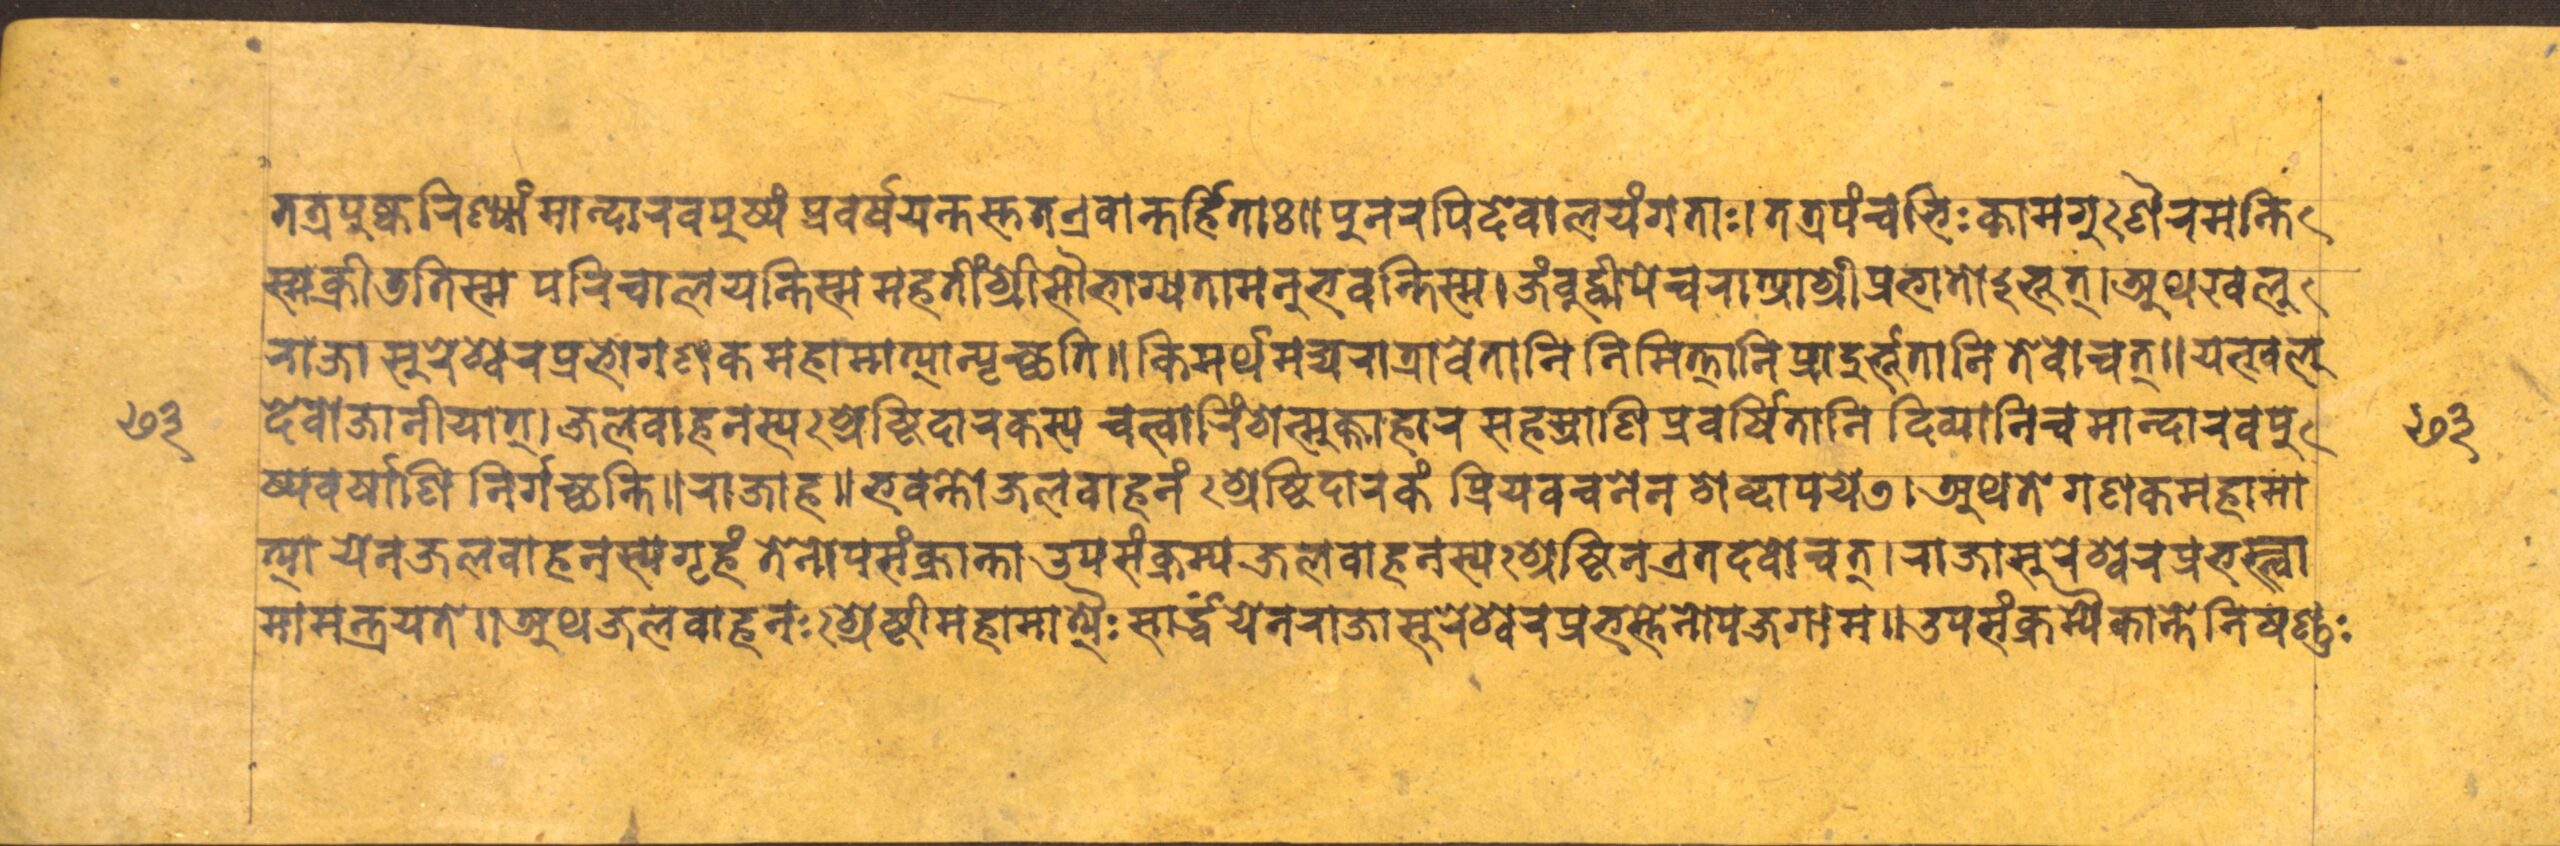 तत्रपुष्करिण्यां मान्दारवपुष्पं प्रवर्षयन्तस्ततत्रैवान्तर्हिताः॥ पुनरपिदेवालयंगताः। तत्रपंचभिःकामगुणैरमन्ति
स्मक्रीडतिस्म परिचालयन्तिस्म महतींश्रीसौभाग्यतामनुभवन्तिस्म। जंबुद्वीपेचरात्र्याश्रीप्रभातोऽभूत्। अथखलु
राजा सुरेश्वरप्रभोगणकमहामात्यान्पृच्छति॥ किमर्थमद्यरात्रावेतानि निमित्तानिप्रादुर्भूतानि तेवोचत्॥ यत्खलु
७३ देवोजानीयात्। जलवाहनस्यश्रेष्ठिदारकस्य चत्वारिंशेत्मुक्ताहार सहस्राणि प्रवर्षितानि दिव्यानिच मान्दारवपु ७३
ष्पवर्षाणि निर्गच्छन्ति॥ राजाह॥ भवन्तो जलवाहनं श्रेष्ठिदारकं प्रियवचनेन शेब्दापयेत। अथते गणकमहामा
त्या येनजलवाहनस्यगृहं तेनोपसंक्रान्ता उपसंक्रम्य जलवाहनस्यश्रेष्ठिनएतदवोचत्। राजासुरेश्वरप्रभस्त्वा
मामन्त्रयते॥ अथजलवाहनःश्रेष्ठीमहामात्यैः सार्द्धंयेनराजासुरेश्वरप्रभस्तेनोपजगाम॥ उपसंक्रम्यैकान्तेनिषण्णः